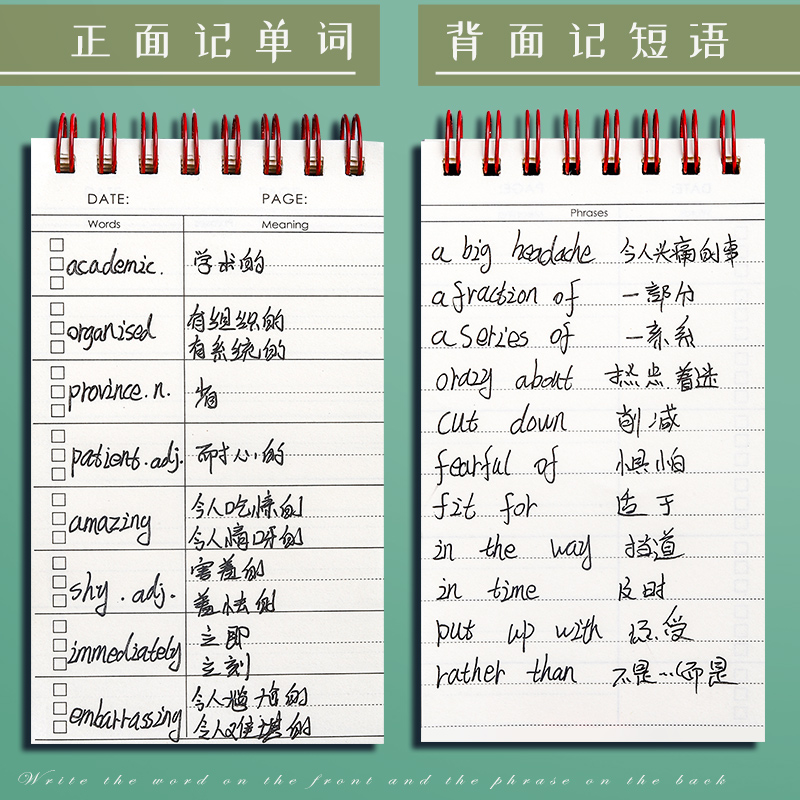 正面记单词
背面记短语
DATE: PAGE:
Words Meaning
academic. 学术的
organised 有组织的
有系统的
province.n. 省
patient.adj. 耐心的
amazing 令人吃惊的
令人惊讶的
shy.adj. 害羞的
羞怯的
immediately 立即
立刻
embarrassing 令人尴尬的
令人难堪的
Phrases
a big headache 令人头痛的事
a fraction of 一部分
a series of 一系
crazy about 热点 着迷
cut down 削减
fearful of 惧怕
fit for 适于
in the way 挡道
in time 及时
put up with 忍受
rather than 不是…而是
Write the word on the front and the phrase on the back